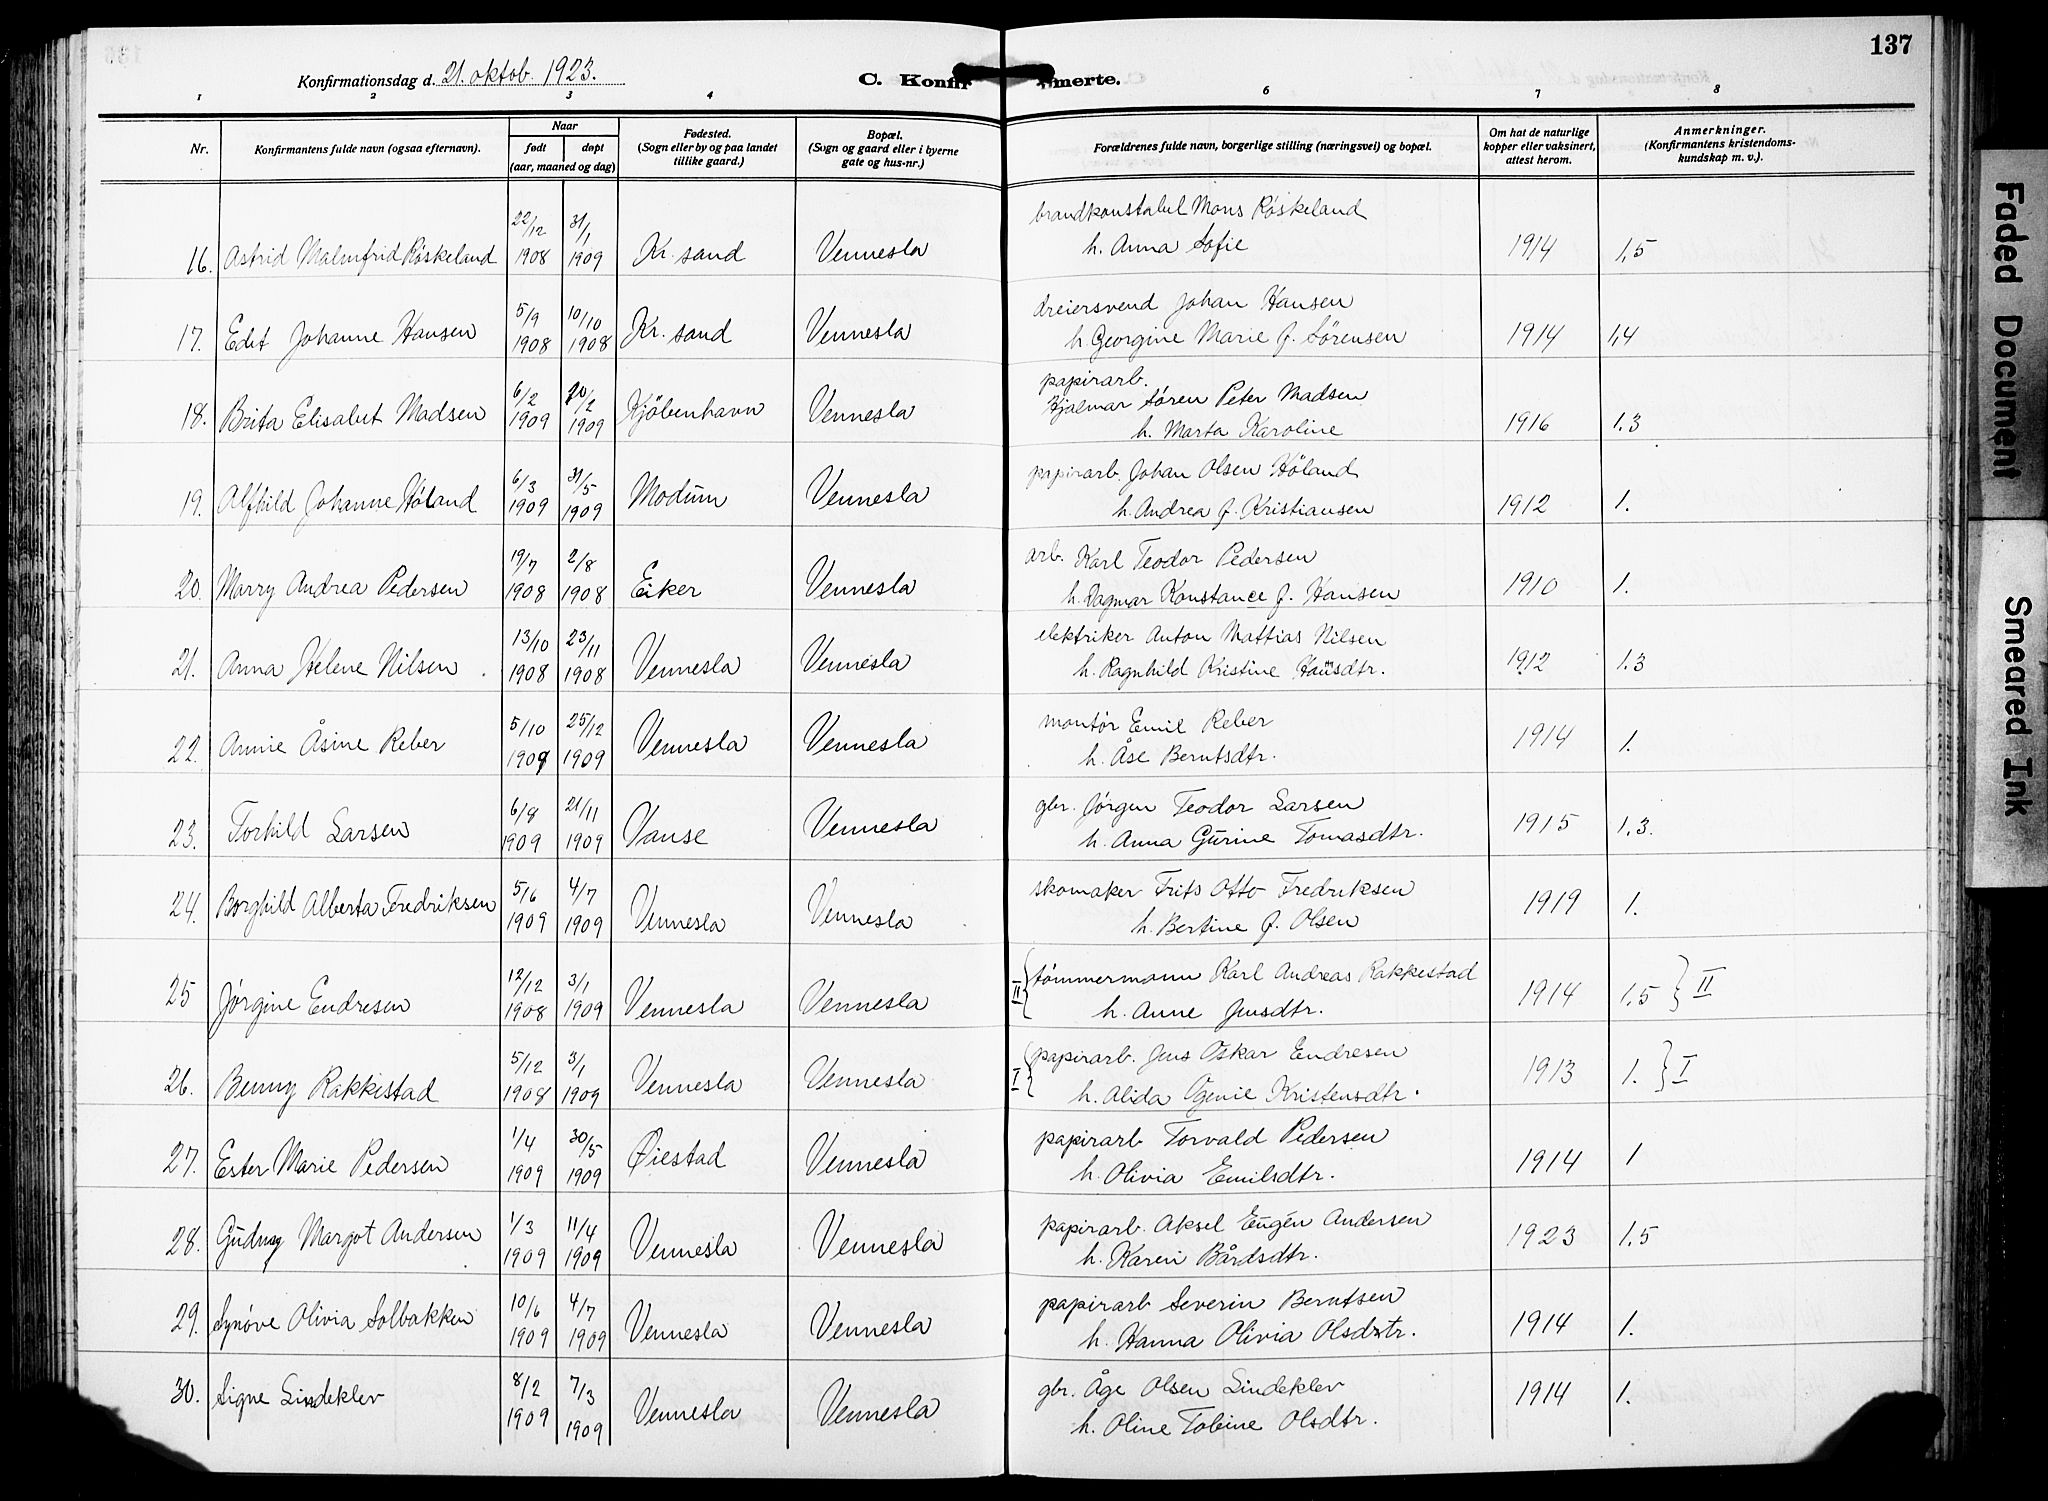 137
Konfirmationsdag d. 21. oktob. 1923.
C. Konfir merte.
1 2 3 4 5 6 7 8
Nr.
Konfirmantens fulde navn (ogsaa efternavn).
Naar
født døpt
(aar, maaned og dag)
Fødested.
(Sogn eller by og paa landet
tillike gaard.)
Bopæl.
(Sogn og gaard eller i byerne
gate og hus-nr.)
Forældrenes fulde navn, borgerlige stilling (næringsvei) og bopæl.
Om hat de naturlige
kopper eller vaksinert,
attest herom.
Anmerkninger.
(Konfirmantens kristendoms-
kundskap m. v.).
22/12 31/1 brandkonstabel Mons Røskeland
16. Astrid Malmfrid Røskeland 1908 1909 Kr. sand Vennesla h. Anna Sofie 1914 1,5
5/9 10/10 dreiersvend Johan Hansen
17. Edit Johanne Hansen 1908 1908 Kr. sand Vennesla h. Georgine Marie f. Sørensen 1914 1,4
papirarb.
6/2 20/2 Hjalmar Søren Peter Madsen
18. Brita Elisabet Madsen 1909 1909 Kjöbenhavn Vennesla h. Marta Karoline 1916 1.3
6/3 31/5 papirarb. Johan Olsen Höland
19. Alfhild Johanne Höland 1909 1909 Modum Vennesla h. Andrea f. Kristiansen 1912 1.
19/7 2/8 arb. Karl Teodor Pedersen
20. Marry Andrea Pedersen 1908 1908 Eiker Vennesla h. Dagmar Konstance f. Hansen 1910 1.
13/10 23/11 elektriker Anton Mattias Nilsen
21. Anna Helene Nilsen 1908 1908 Vennesla Vennesla h. Ragnhild Kristine Hansdtr. 1912 1.3
5/10 25/12 montør Emil Reber
22. Annie Åsine Reber 1909 1909 Vennesla Vennesla h. Åse Berntsdtr. 1914 1.
6/8 21/11 gbr. Jørgen Teodor Larsen
23. Torhild Larsen 1909 1909 Vanse Vennesla h. Anna Gurine Tomasdtr. 1915 1.3.
5/6 4/7 skomaker Frits Otto Fredriksen
24. Borghild Alberta Fredriksen 1909 1909 Vennesla Vennesla h. Bertine f. Olsen 1919 1.
12/12 3/1 II { tømmermann Karl Andreas Rakkestad
25 Jørgine Endresen 1908 1909 Vennesla Vennesla h. Anne Jensdtr. 1914 1.5 } II
5/12 3/1 I { papirarb. Jens Oskar Endresen
26. Benny Rakkestad 1908 1909 Vennesla Vennesla h. Alida Ogenie Kristensdtr. 1913 1. } I
1/4 30/5 papirarb Torvald Pedersen
27. Ester Marie Pedersen 1909 1909 Øiestad Vennesla h. Olivia Emilsdtr. 1914 1
1/3 11/4 papirarb. Aksel Eugén Andersen
28. Gudny Margot Andersen 1909 1909 Vennesla Vennesla h. Karen Bårdsdtr. 1923 1.5
10/6 4/7 papirarb Severin Berntsen
29. Synøve Olivia Solbakken 1909 1909 Vennesla Vennesla h. Hanna Olivia Olsdtr. 1914 1.
8/2 7/3 gbr. Åge Olsen Lindeklev
30. Signe Lindeklev 1909 1909 Vennesla Vennesla h. Oline Tobine Olsdtr. 1914 1.
Faded Document
Smeared Ink